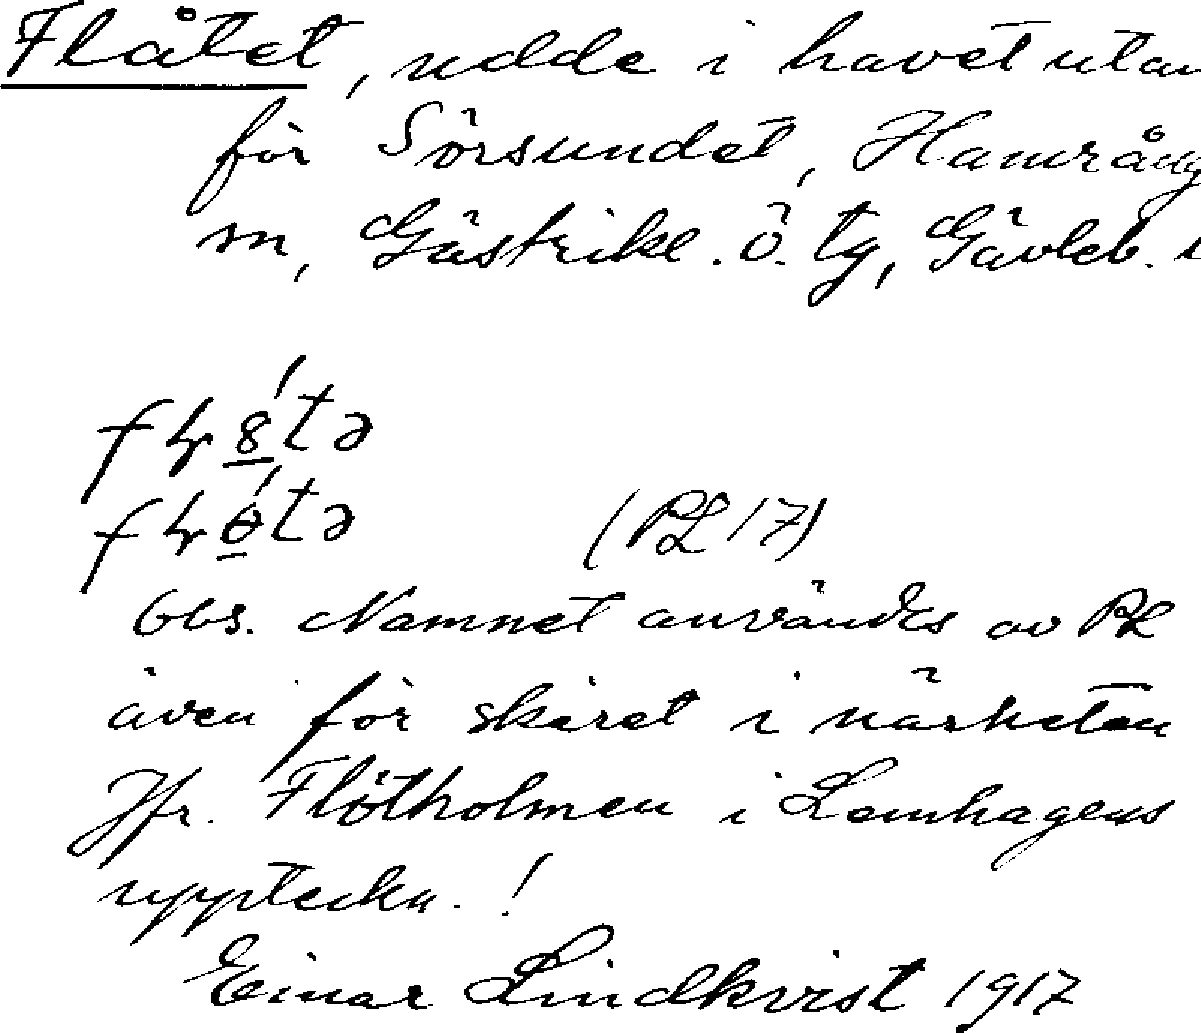 Flåtet, udde i havet utan
för Sörsundet, Hamrång
sn, Gästrikl. ö. tg, Gävleb. l
(PL 17)
Obs. Namnet användes av PL
även för skäret i närheten
Jfr. Flötholmen i Lomhagens
uppteckn. !
Einar Lindkvist 1917